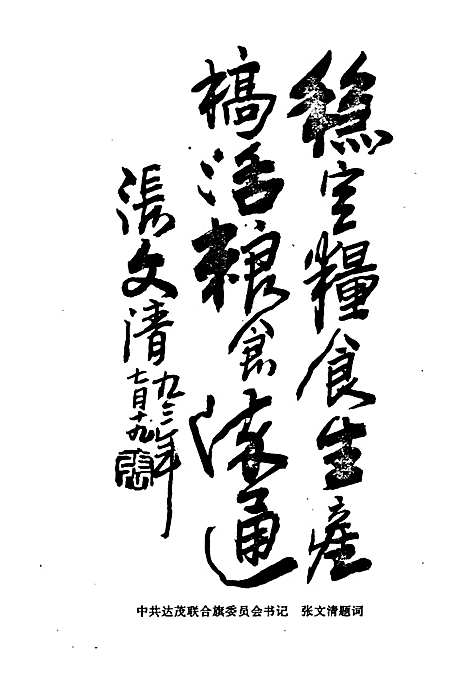 穩定糧食生產
搞活粮食流通
張文清
九三年
七月十九
中共达茂联合旗委员会书记　张文清题词